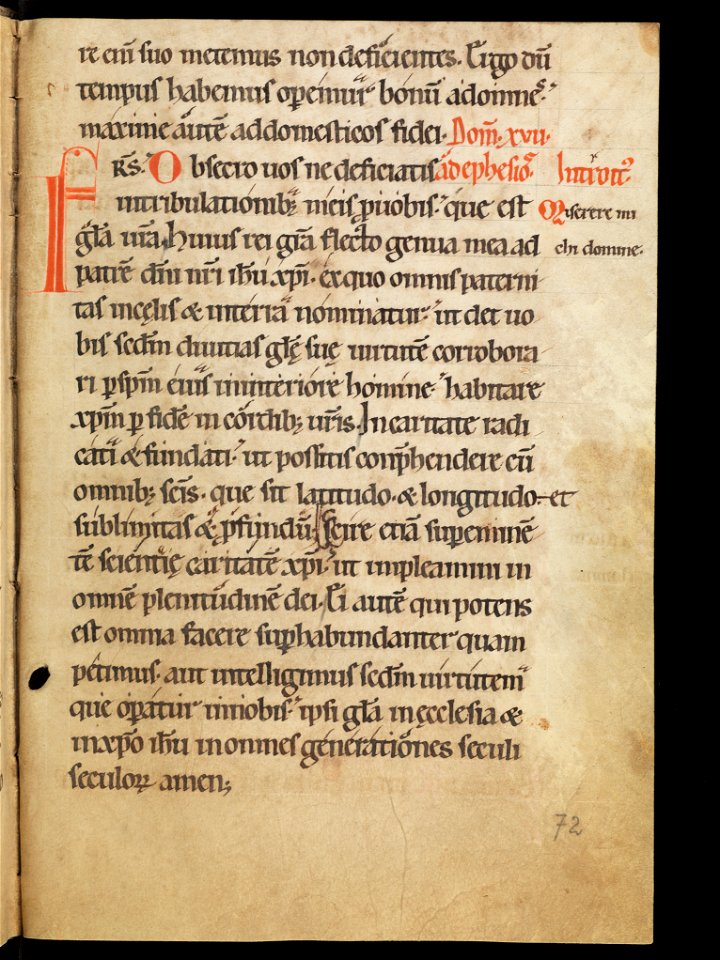 re eni̅ suo metemus non deficientes. Ergo du̅
tempus habemus operemur bonu̅ ad omnes.
maxime aute̅ ad domesticos fidei. Dom̅. xvii.
FRS̅. Obsecro uos ne deficiatis ad ephesios Introit᷒
in tribulationib; meis ꝓ uobis. que est Miserere mi
gl̅a u̅ra. Huius rei gr̅a flecto genua mea ad chi domine.
patre̅ dn̅i nr̅i ih̅u xp̅i. ex quo omnis paterni
tas in cęlis & in terra nominatur. ut det uo
bis scd̅m diuitias glę̅ suę uirtute̅ corrobora
ri ꝑ sp̅m eius in interiore homine. habitare
xp̅m ꝑ fide̅ in cordib; ur̅is. In caritate radi
cati & fundati. ut possitis conp̅hendere cu̅
omnib; sc̅is. que sit latitudo. & longitudo. et
sublimitas & ꝓfundu̅. Scire etia̅ supermine̅
te̅ scientię caritate̅ xp̅i. ut impleamini in
omne̅ plenitudine̅ dei. Ei aute̅ qui potens
est omnia facere suꝑhabundanter quam
petimus. aut intelligimus scd̅m uirtutem
que operatur in nobis. ipsi gl̅a in ęcclesia &
in xp̅o ih̅u in omnes generationes seculi
seculoꝝ amen;
72